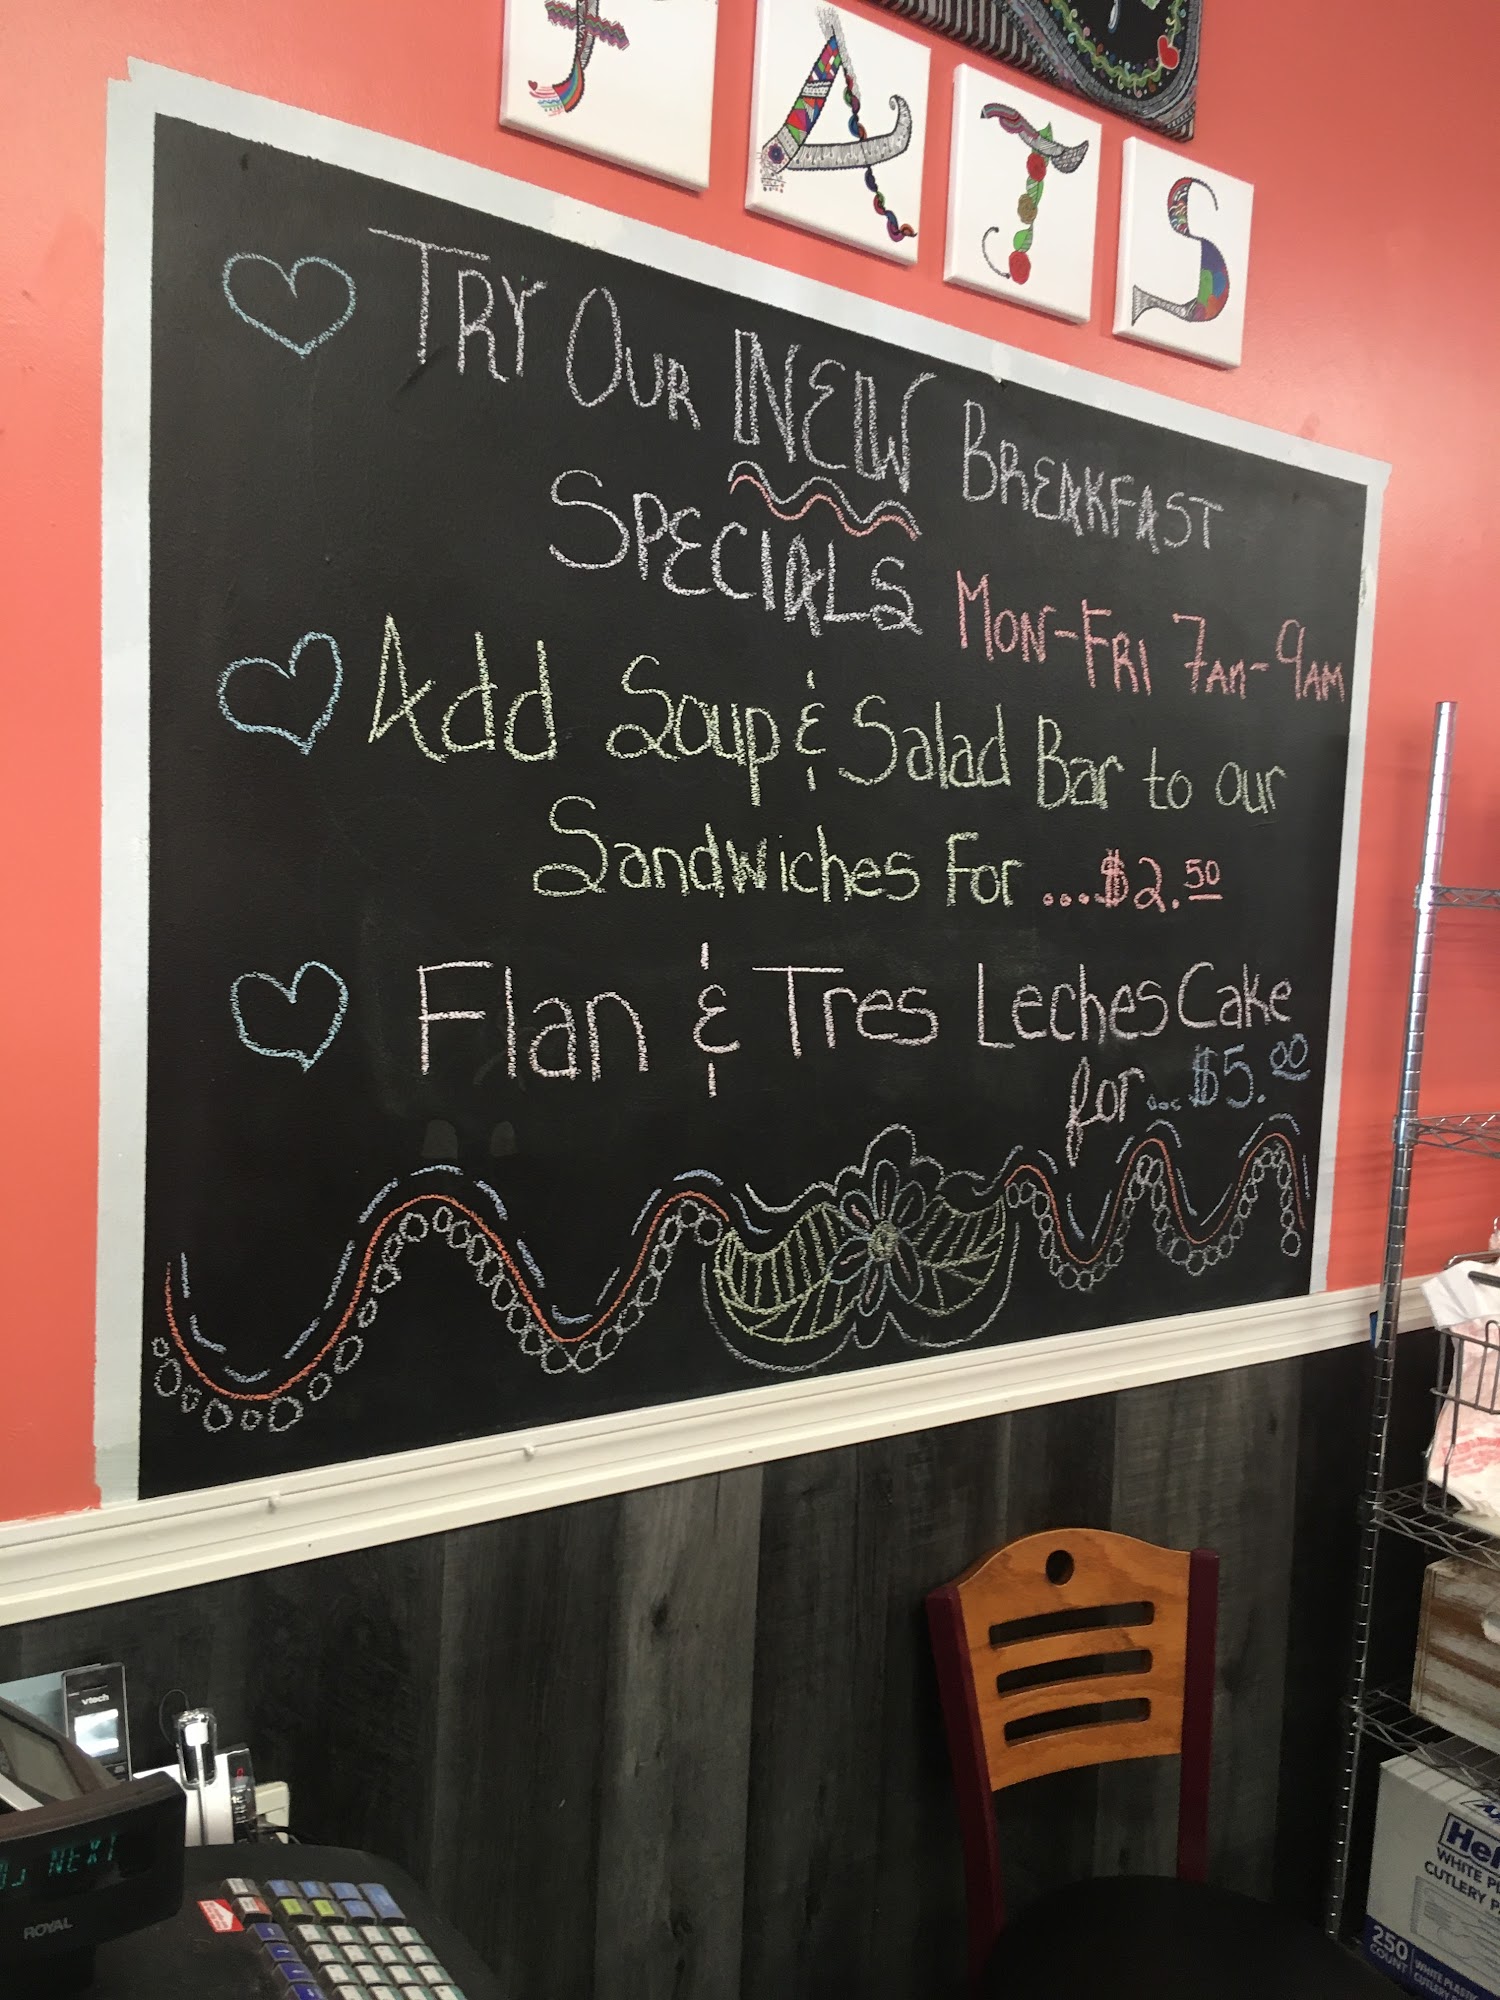 EATS
TRY OUR NEW BREAKFAST
SPECIALS MON-FRI 7AM-9AM
Add Soup & Salad Bar to our
Sandwiches For ...$2.50
Flan & Tres Leches Cake
for...$5.00
vtech
NEXT
ROYAL
WHITE
CUTLERY
250
COUNT
WHITE PLASTIC